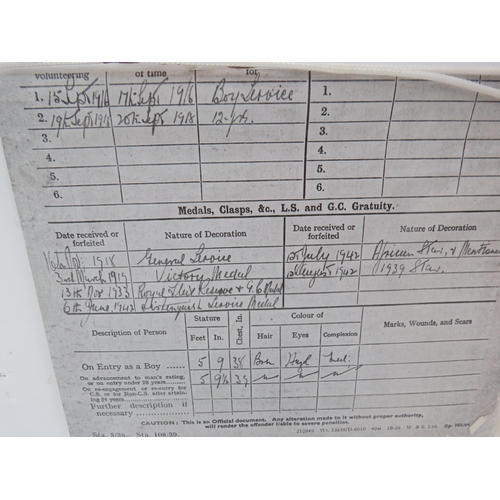 volunteering of time for
1. 15 Sept 1916 17th Sept 1916 Boy Service 1.
2. 19th Sept 1918 20th Sept 1918 12 yrs. 2.
3. 3.
4. 4.
5. 5.
6. 6.
Medals, Clasps, &c., L.S. and G.C. Gratuity.
Date received or forfeited Nature of Decoration Date received or forfeited Nature of Decoration
1918 General Service July 1942 African Star,
March 1919 Victory Medal August 1942 1939 Star.
13th Nov 1933 Royal Fleet Reserve & G.C. Medal
6th June 1942 Distinguish Service Medal
Description of Person Stature Chest, In. Colour of Marks, Wounds, and Scars
Feet In. Hair Eyes Complexion
On Entry as a Boy ...... 5 9 38 Brn Hazl Med:
On advancement to man's rating, or on entry under 28 years ....... 5 9½ 39 " " "
On re-engagement or re-entry for C.S. or for Non-C.S. after attaining 28 years ......
Further description if necessary ......
CAUTION: This is an Official document. Any alteration made to it without proper authority,
will render the offender liable to severe penalties.
Sta. 3/39. Sta. 108/39.